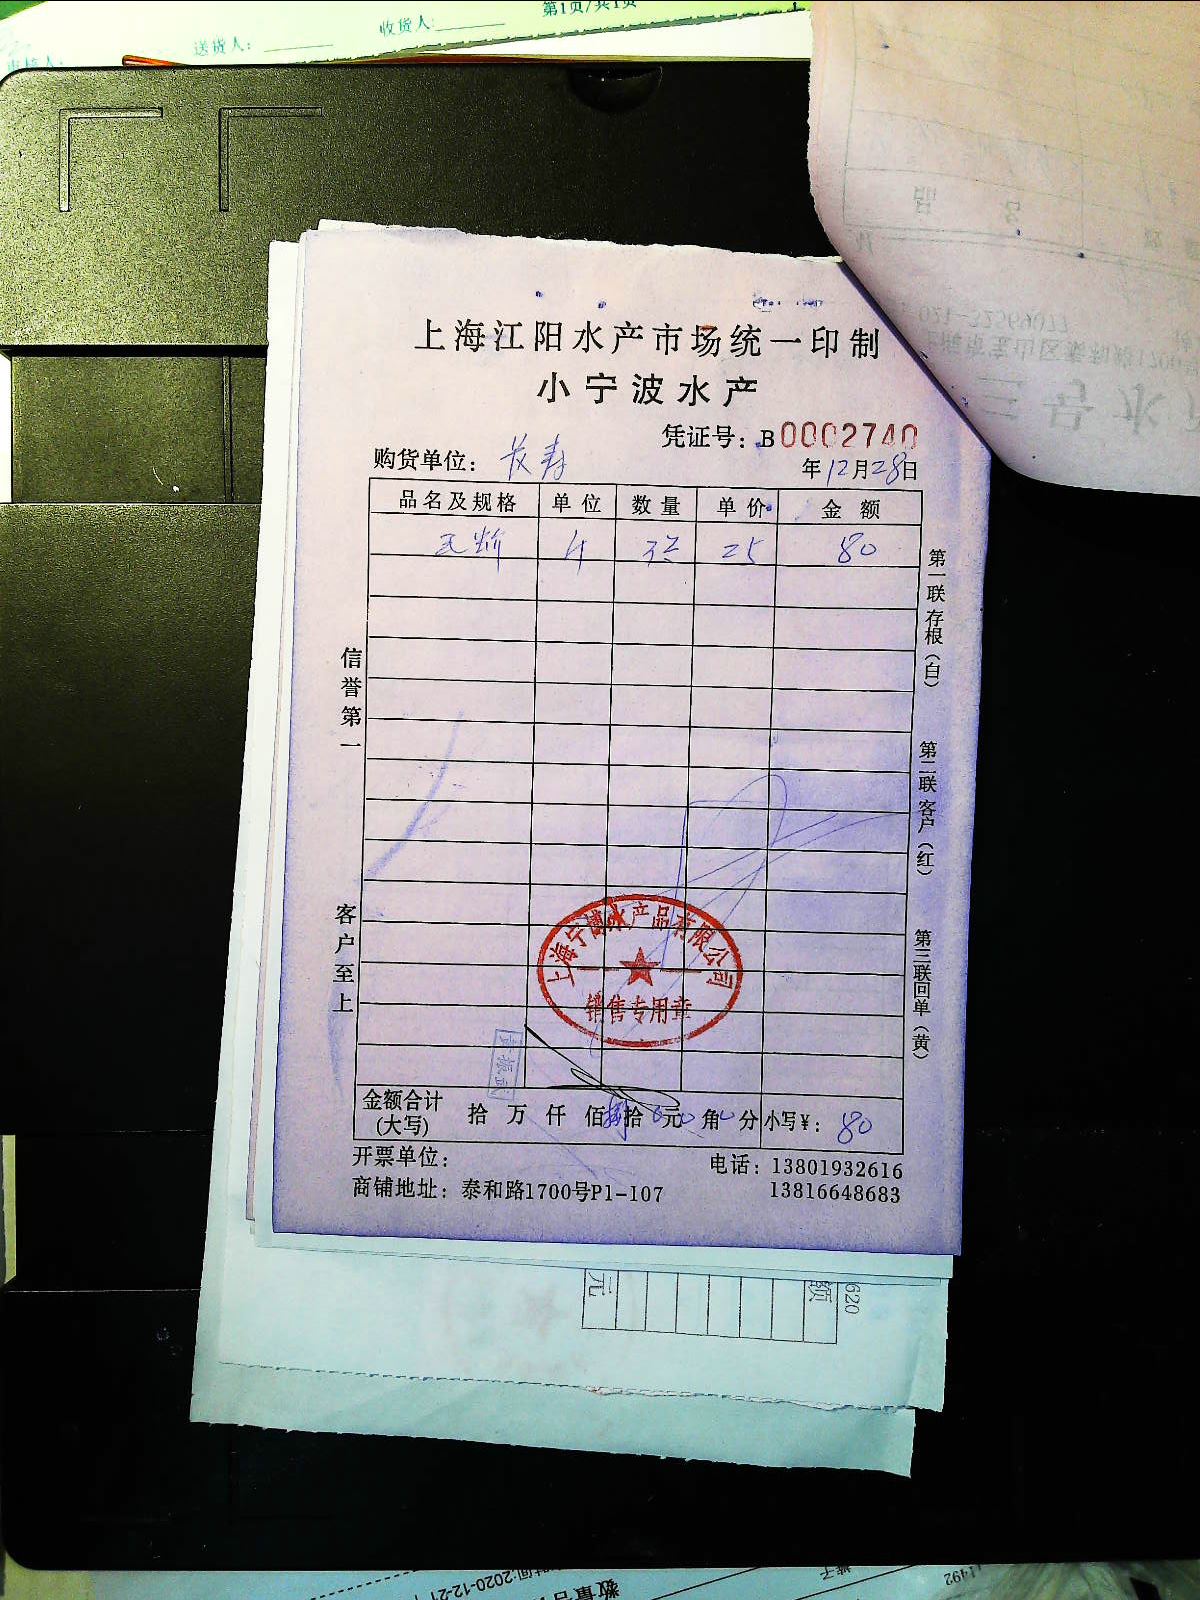 第1页/共1页
收货人:
送货人:
上海江阳水产市场统一印制
小宁波水产
凭证号: B0002740
购货单位: 长寿
年12月28日
品名及规格 单位 数量 单价 金额
25 80
信誉第一
客户至上
第一联存根(白)
第二联客户(红)
第三联回单(黄)
上海宁博水产品有限公司
销售专用章
金额合计(大写) 拾 万 仟 佰 捌拾 0元 0角 0分 小写¥: 80
开票单位:
电话: 13801932616
13816648683
商铺地址: 泰和路1700号P1-107
额
元
620
021-32569077
三号水
品名
时间:2020-12-21
数量